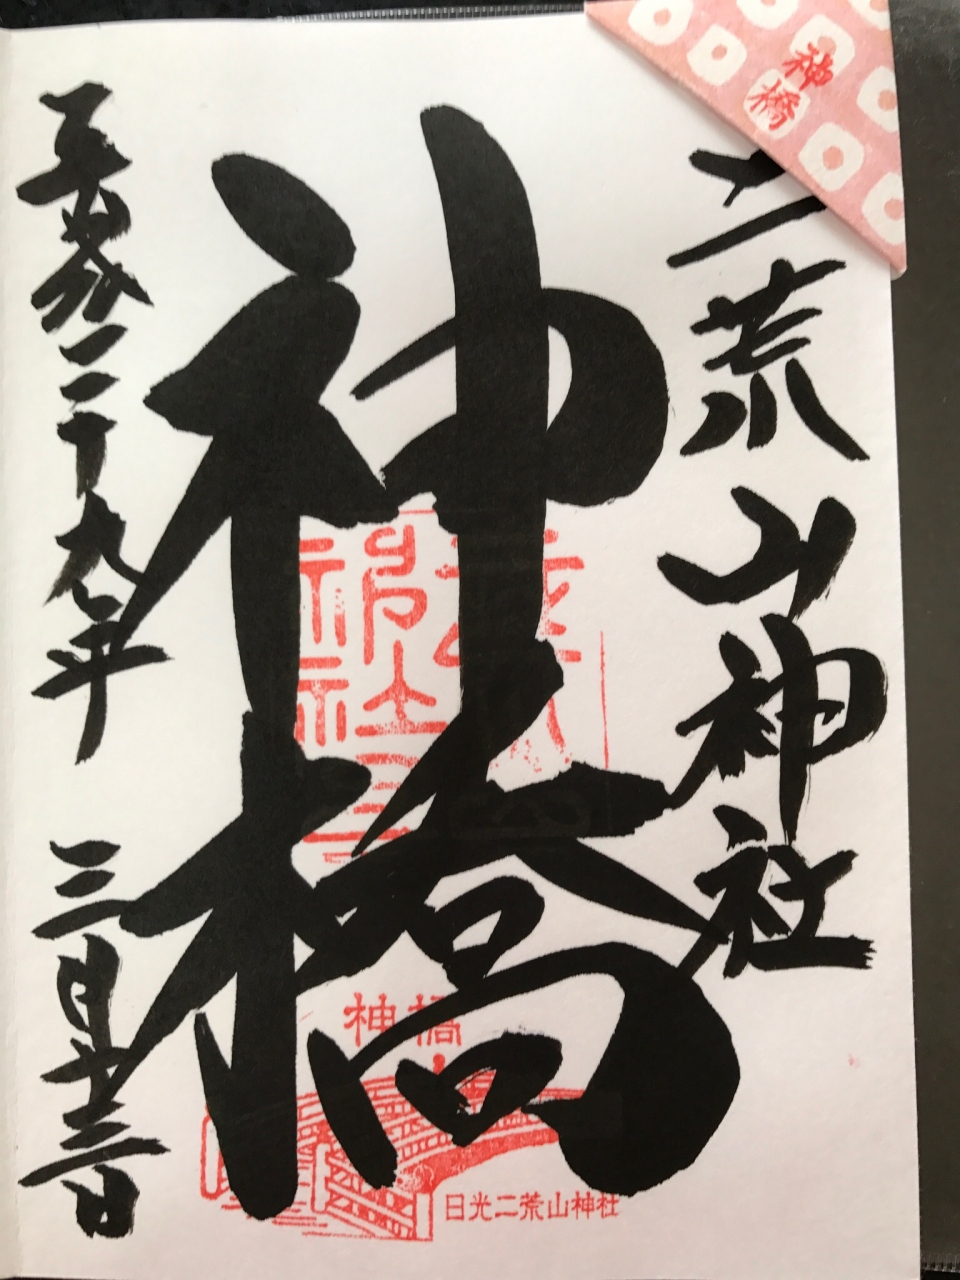 神橋
二荒山神社
神橋
平成二十九年 三月十三日
神橋
日光二荒山神社